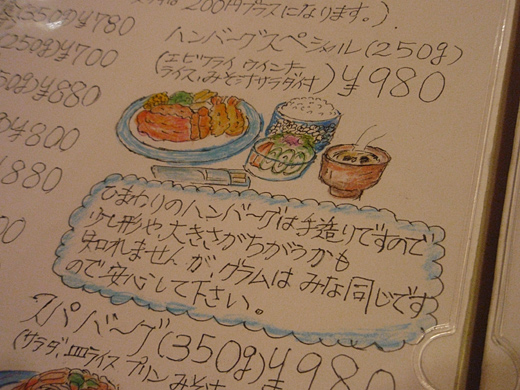 200円プラスになります。)
350g)¥780
ハンバーグスペシャル(250g)
(エビフライ ウインナー
ライス,みそ汁サラダ付)¥980
(250g)¥700
50g)¥880
¥800
¥880
ひまわりのハンバーグは手造りですので
少し形や、大きさがちがうかも
知れませんが、グラムはみな同じです
ので安心して下さい。
スパバーグ(350g)¥980
(サラダ,皿ライス プリン みそ汁